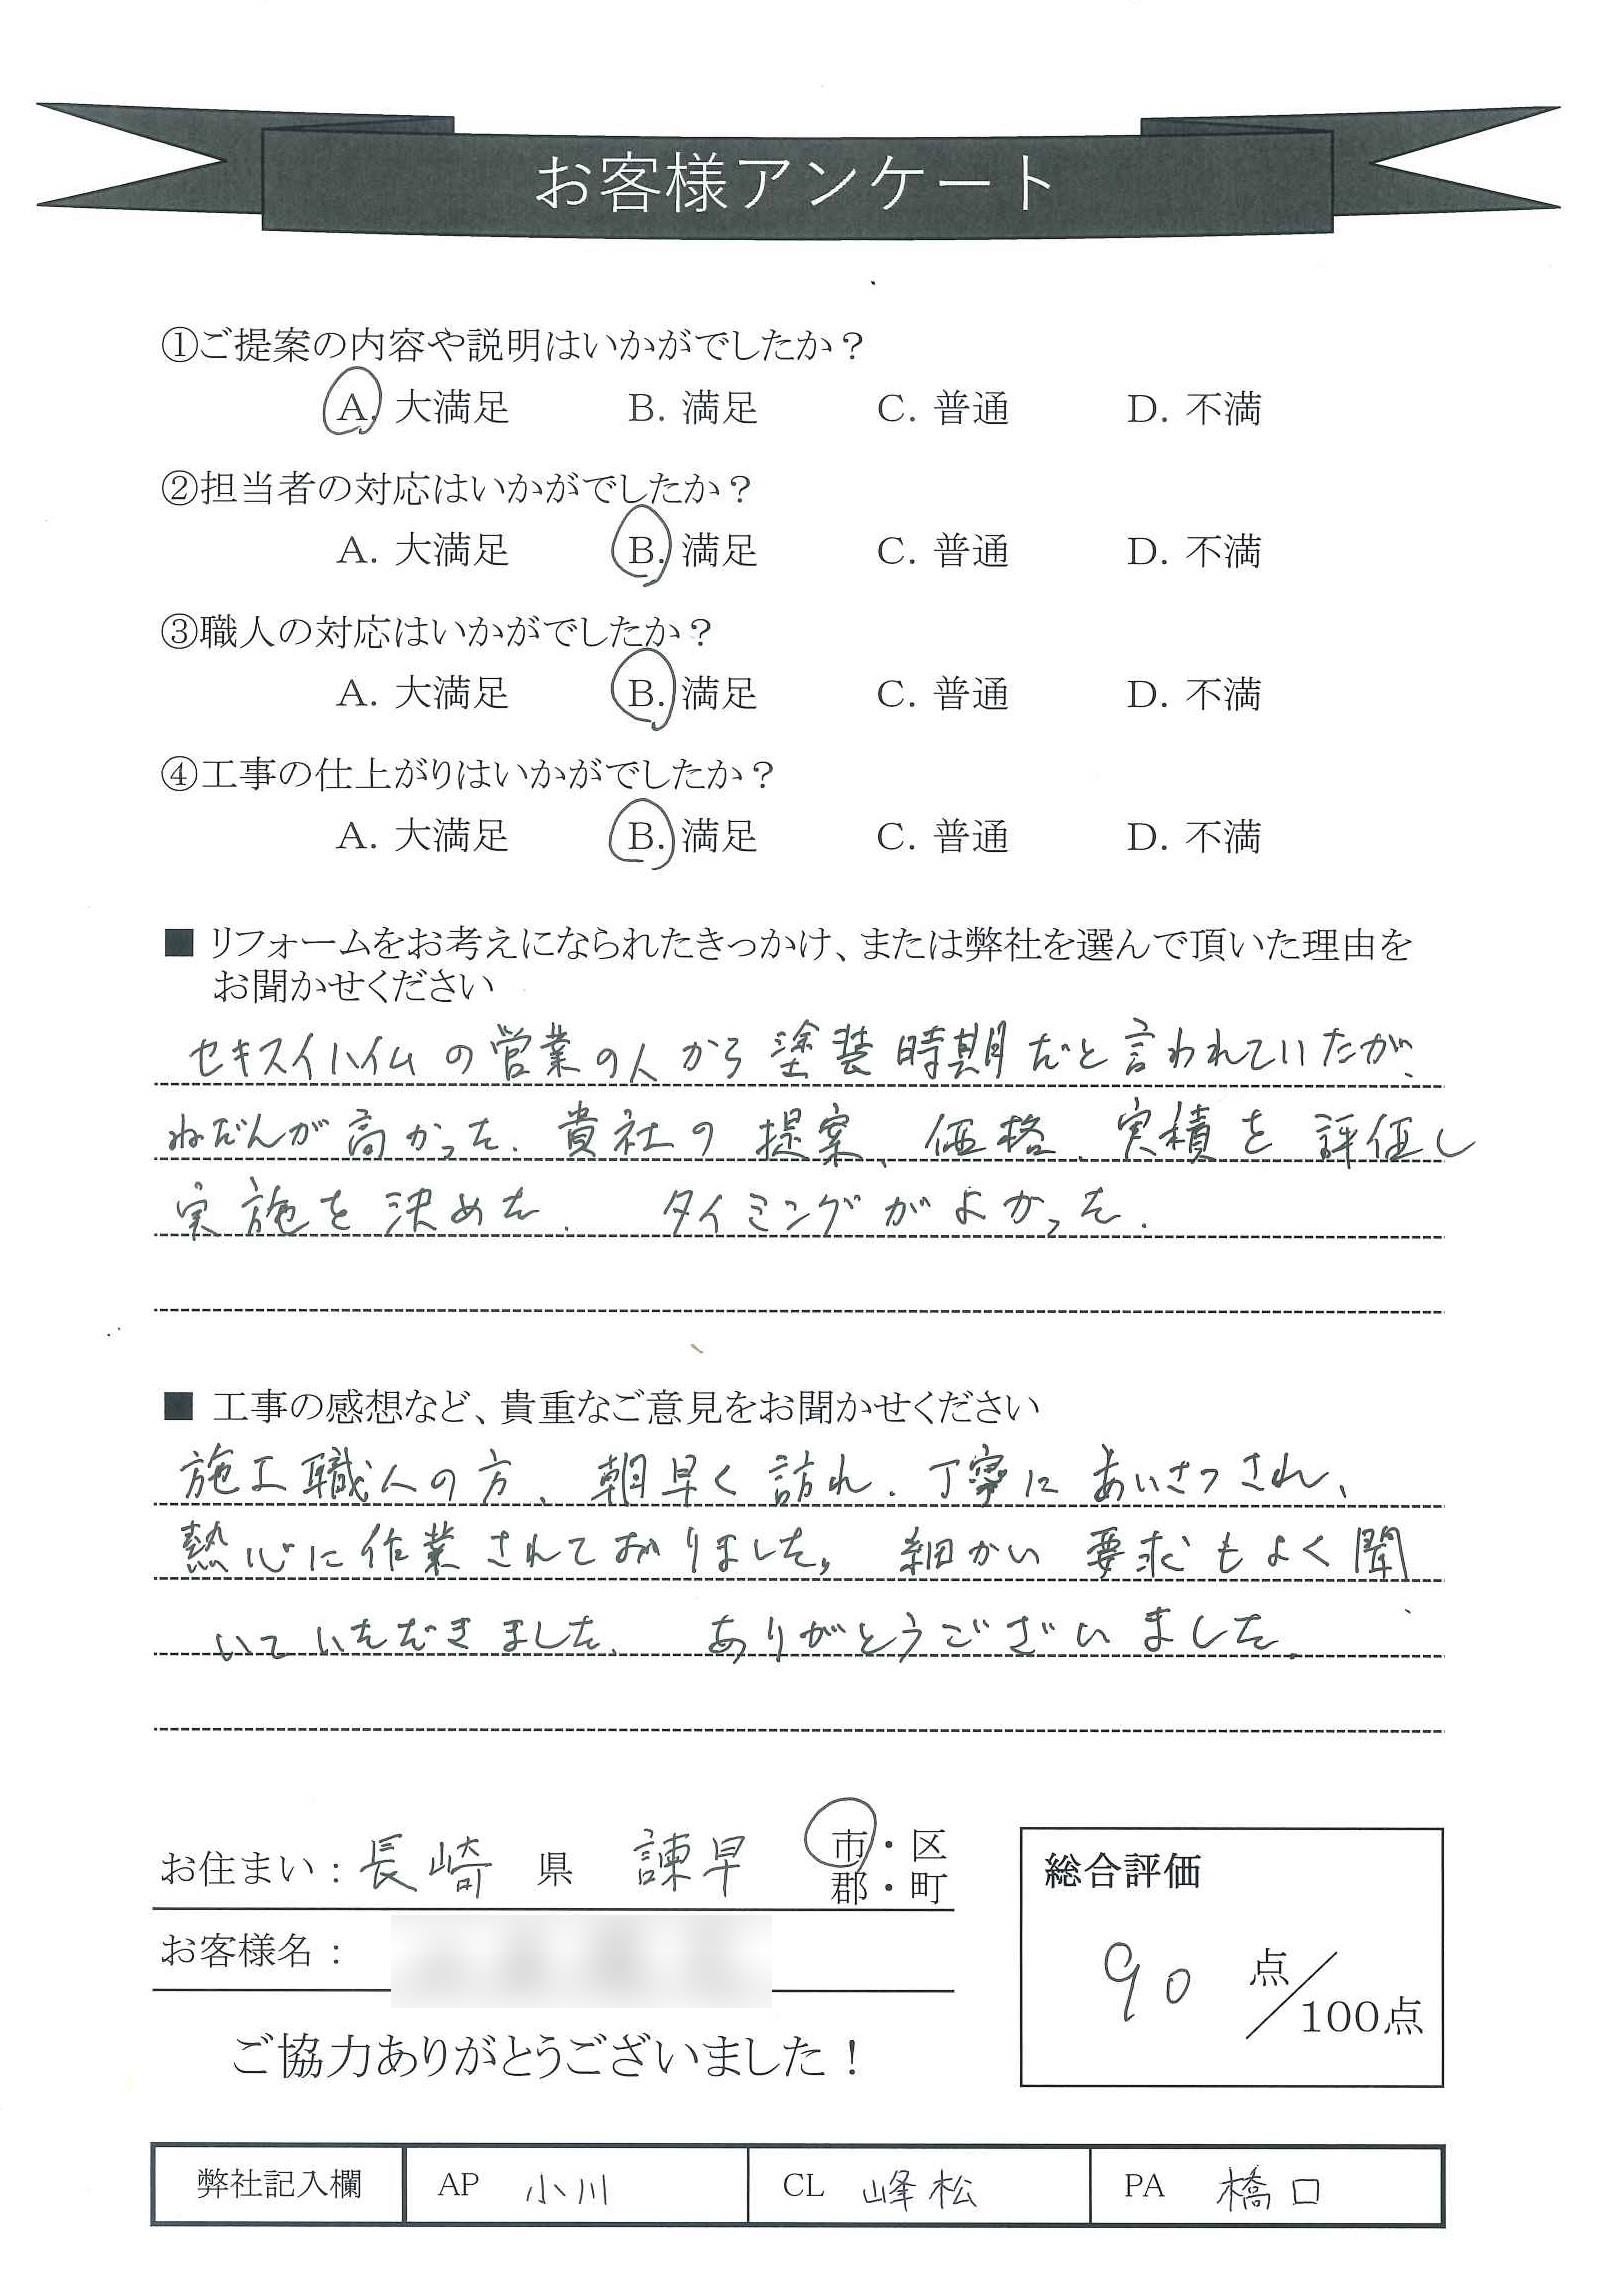 お客様アンケート
①ご提案の内容や説明はいかがでしたか？
A. 大満足 B. 満足 C. 普通 D. 不満
②担当者の対応はいかがでしたか？
A. 大満足 B. 満足 C. 普通 D. 不満
③職人の対応はいかがでしたか？
A. 大満足 B. 満足 C. 普通 D. 不満
④工事の仕上がりはいかがでしたか？
A. 大満足 B. 満足 C. 普通 D. 不満
■ リフォームをお考えになられたきっかけ、または弊社を選んで頂いた理由を
お聞かせください
セキスイハイムの営業の人から塗装時期だと言われていたが、
ねだんが高かった。貴社の提案、価格、実積を評価し
実施を決めた。 タイミングがよかった。
■ 工事の感想など、貴重なご意見をお聞かせください
施工職人の方、朝早く訪れ、丁寧にあいさつされ、
熱心に作業されておりました。 細かい要求もよく聞
いていただきました。 ありがとうございました。
お住まい：長崎 県 諫早 市・区
郡・町
お客様名：
総合評価
90 点／100点
ご協力ありがとうございました！
弊社記入欄 AP 小川 CL 峰松 PA 橋口